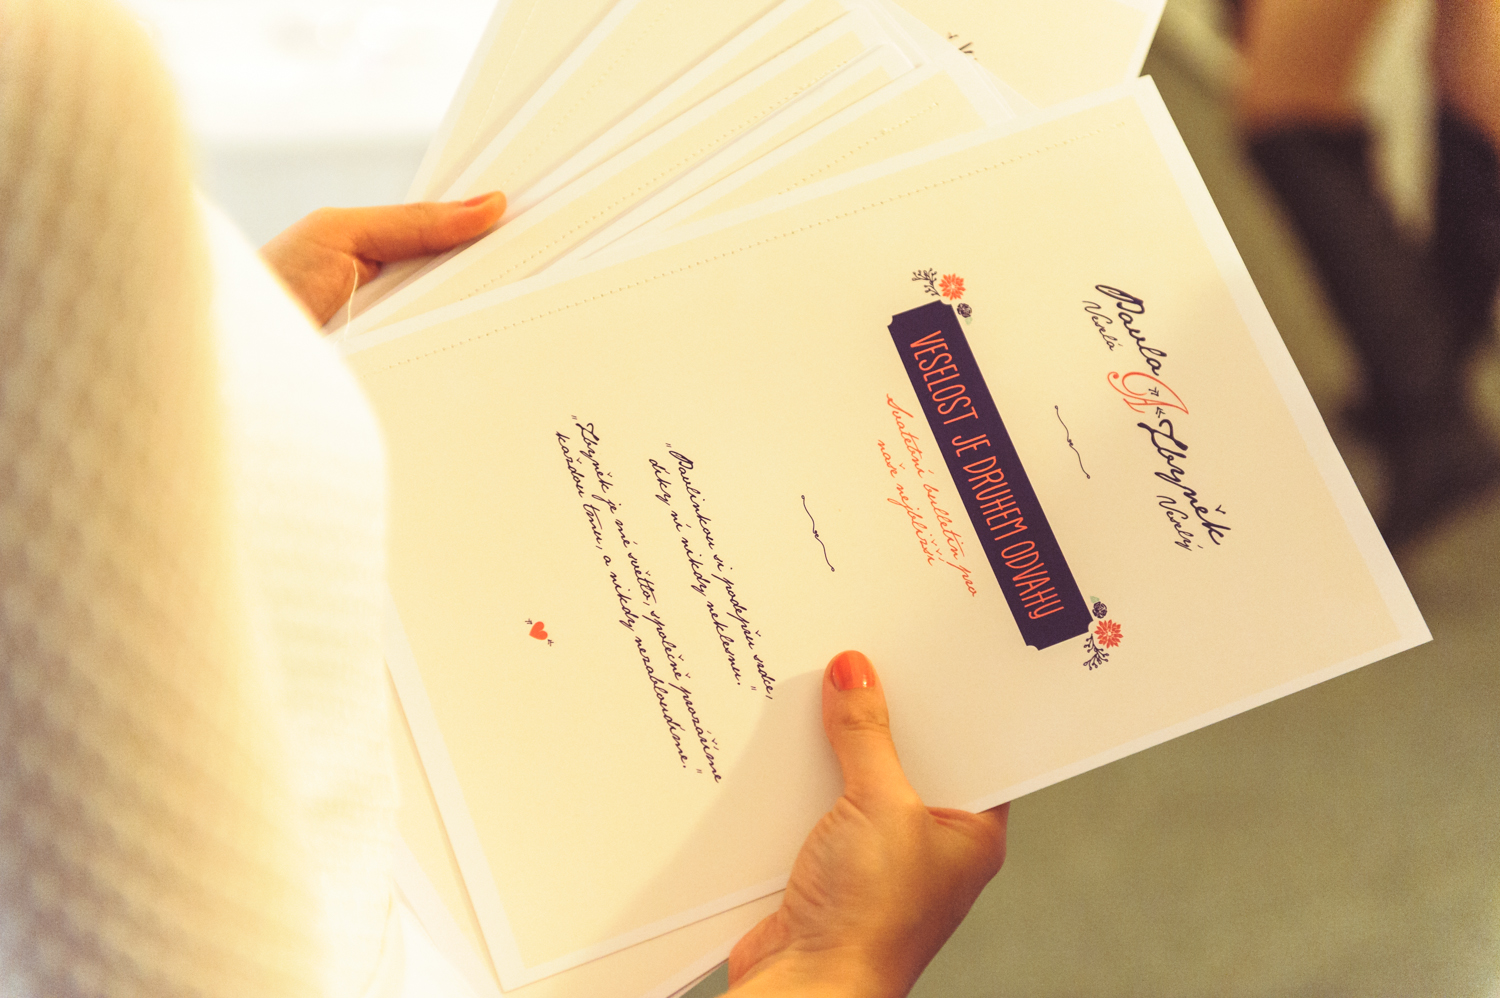 Pavla & Zbyněk
Veselá Veselý
VESELOST JE DRUHEM ODVAHY
Svatební bulletin pro
naše nejbližší
„Pavlínkou si podepřu srdce,
díky ní nikdy neklesnu.“
„Zbyněk je mé světlo, společně prozáříme
každou tmu, a nikdy nezabloudíme.“